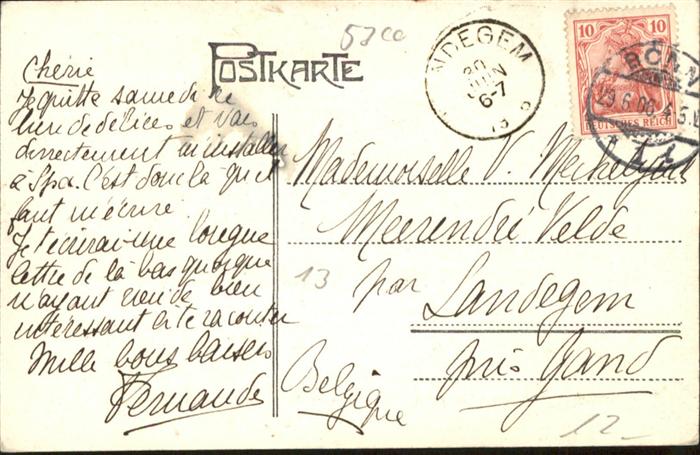 5700
POSTKARTE
NDEGEM
30
JUIN
6-7
19
10 10
DEUTSCHES REICH
29.6.06
Chérie
Je quitte samedi ce
lieu de délices et vais
directement m'installer
à Spa. C'est donc là qu'il
faut m'écrire.
Je t'écrirai une longue
lettre de là bas quoique
n'ayant rien de bien
intéressant à te raconter
Mille bons baisers
Fernande
Mademoiselle V.
Meerendré Velde
par
Landegem
près Gand
Belgique
13
12-